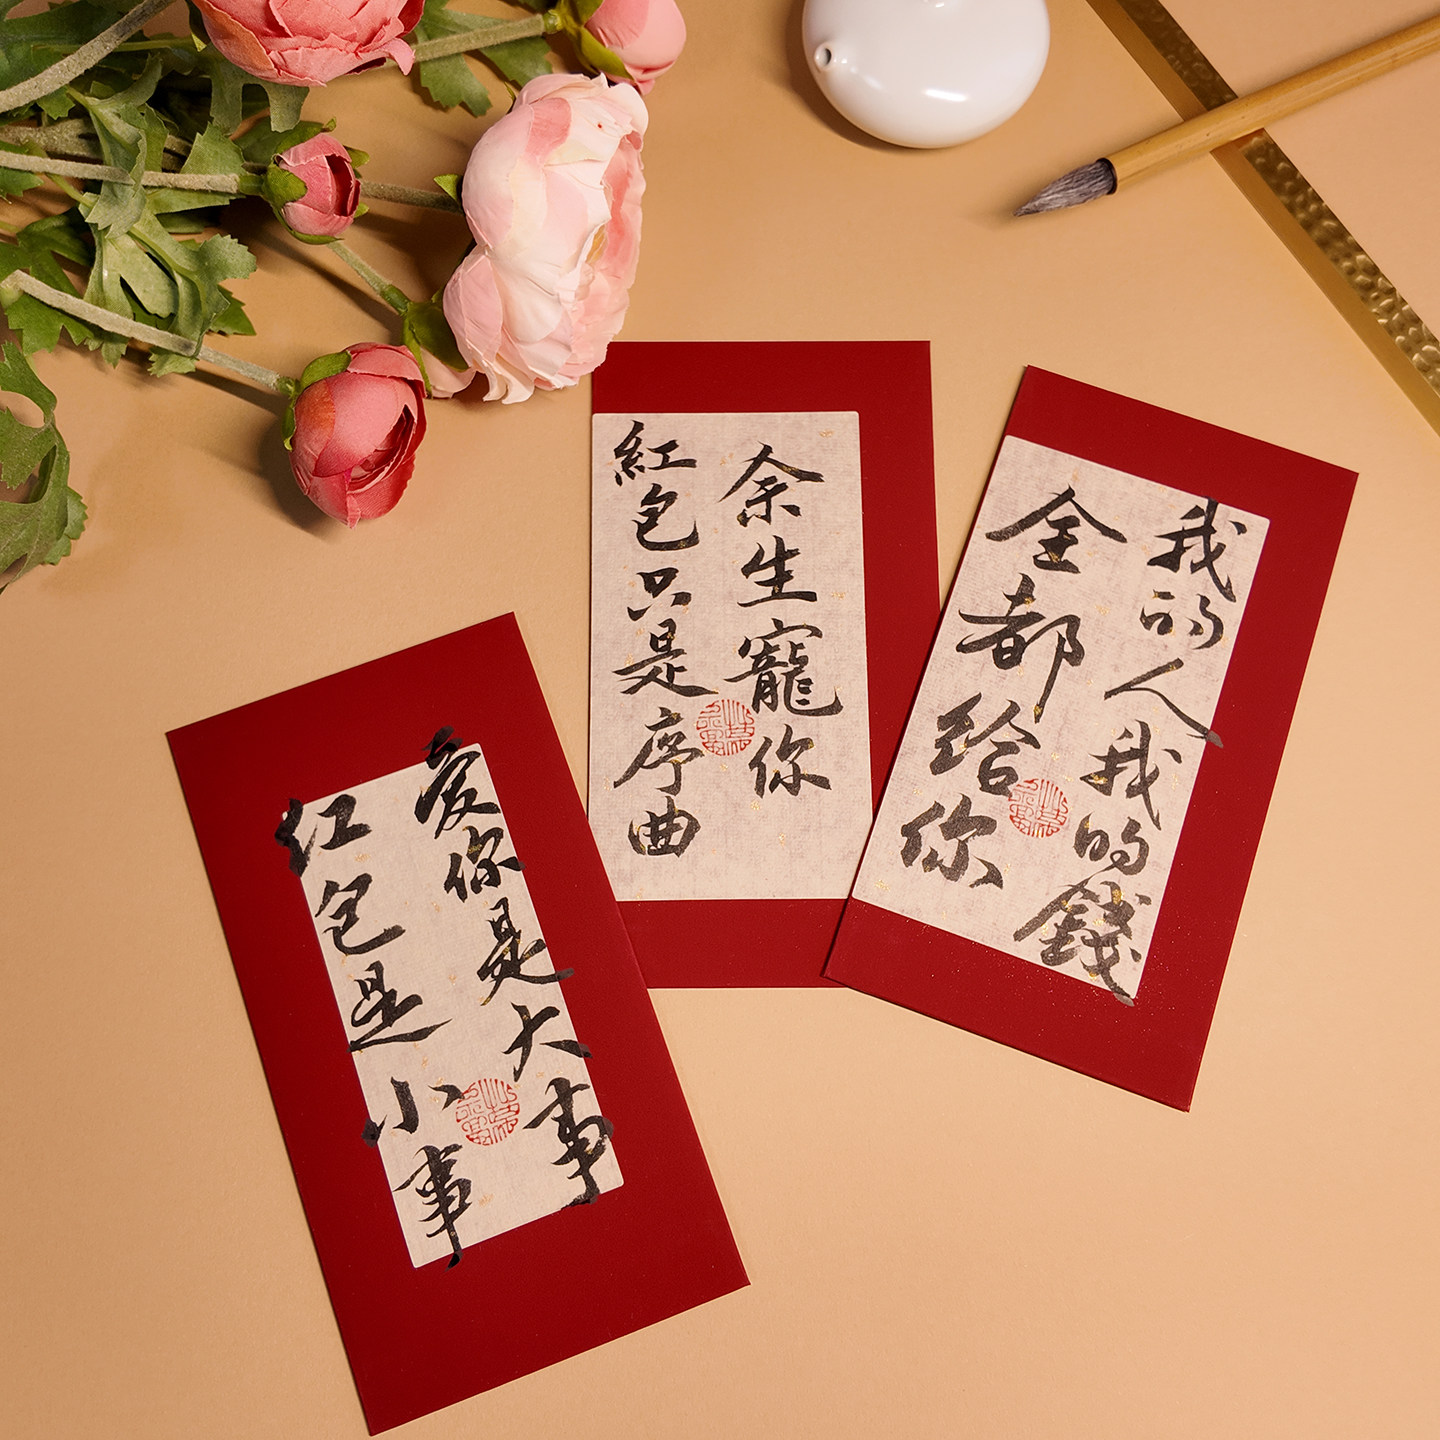 愛你是大事
红包是小事
余生寵你
紅包只是序曲
我的人我的錢
全都给你